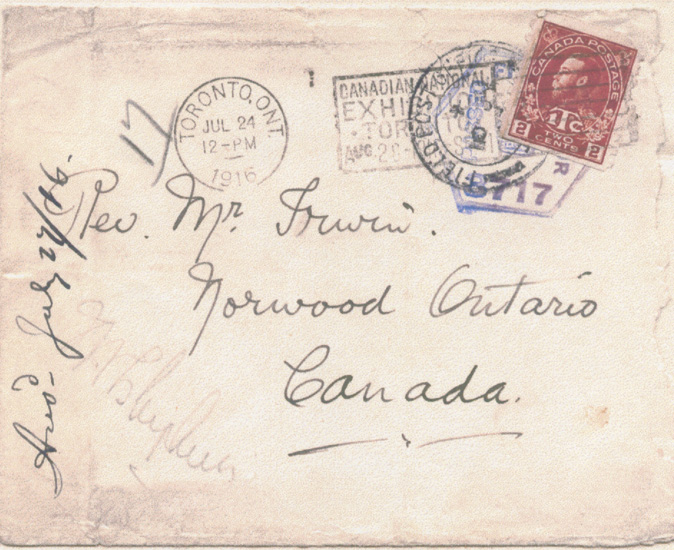 TORONTO, ONT.
JUL 24
12-PM
1916
CANADIAN NATIONAL
EXHI
TOR
AUG. 26
FIELD POST
CANADA POSTAGE
1Tc
2 TWO CENTS 2
R
3717
17
Rev. Mr. Irwin.
Norwood Ontario
Canada.
Ansd - July 27/16.